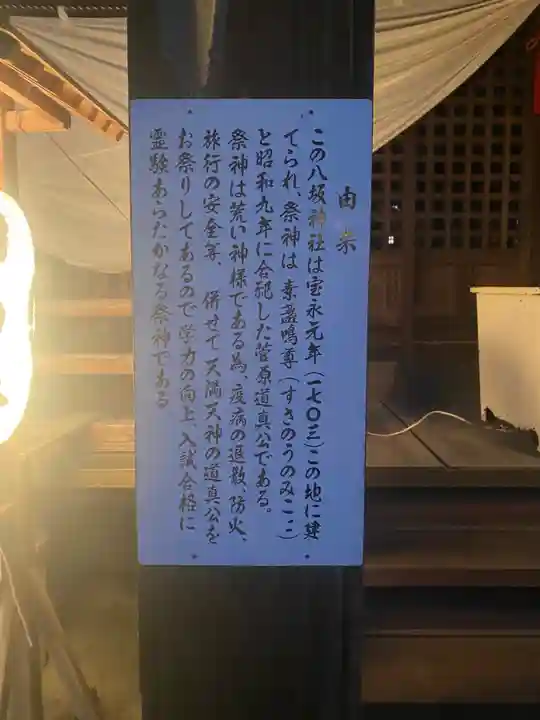 由来
この八坂神社は宝永元年(一七〇三)この地に建
てられ、祭神は 素盞鳴尊(すさのうのみこ(こ)
と昭和九年に合祀した菅原道真公である。
祭神は荒い神様である為、疫病の退散、防火、
旅行の安全等、 併せて天満天神の道真公を
お祭りしてあるので学力の向上、入試合格に
霊験あらたかなる祭神である